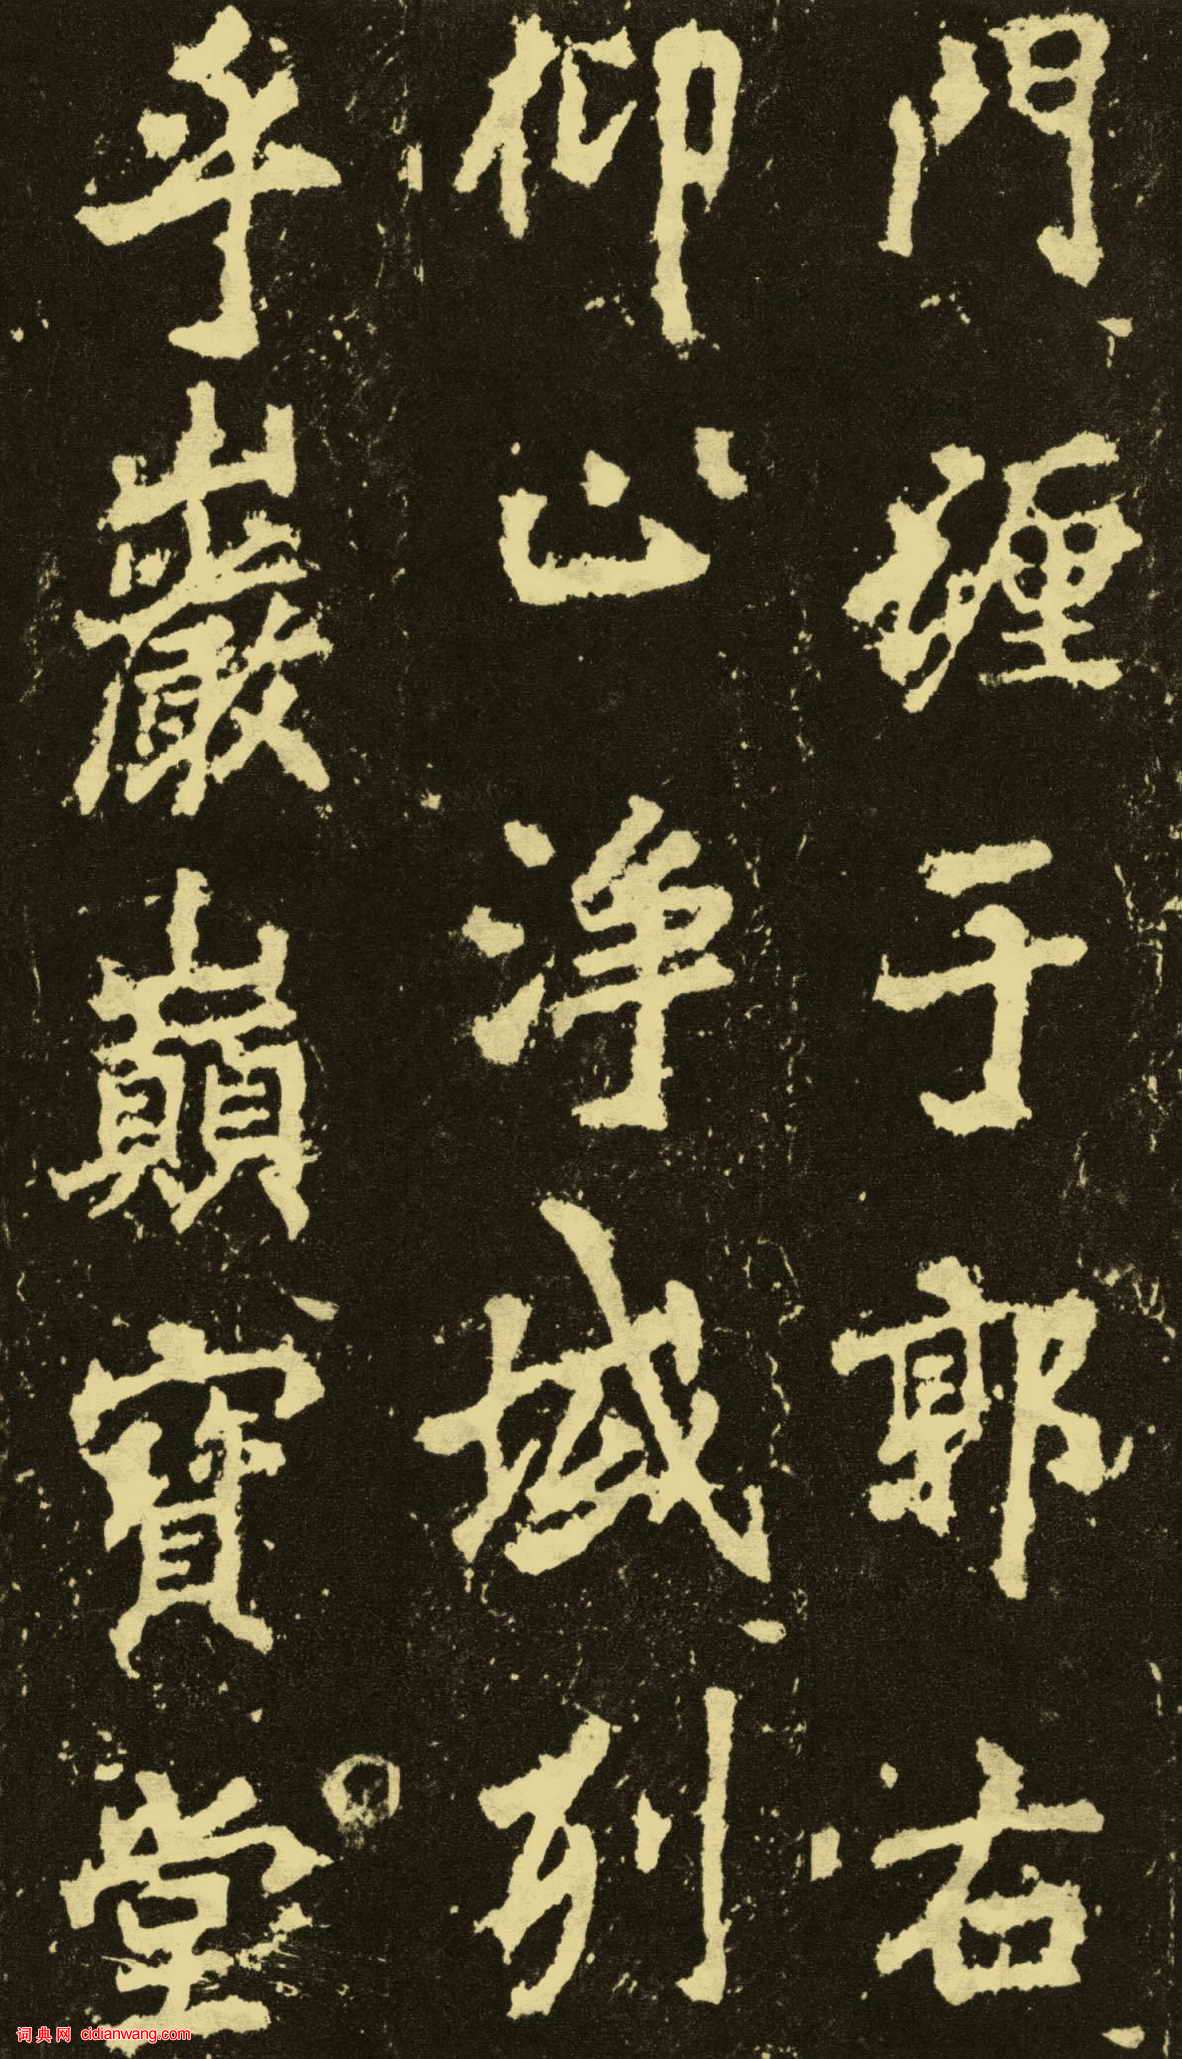 門壥于郭右
仰止淨域列
乎巖巔寶堂
词典网 cidianwang.com